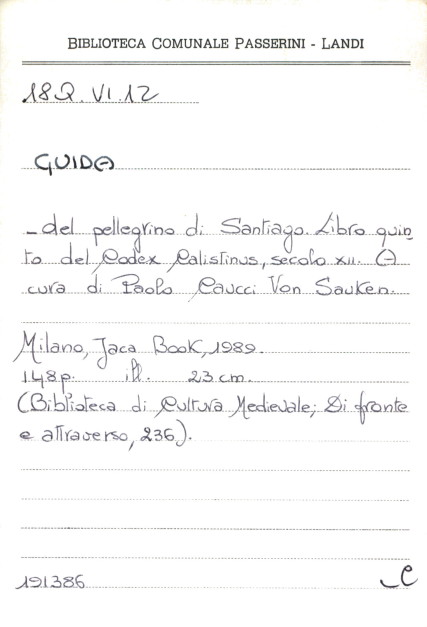 BIBLIOTECA COMUNALE PASSERINI - LANDI
18Q.VI.12
GUIDA
- del pellegrino di Santiago. Libro quin
to del Codex Calistinus, secolo XII. A
cura di Paolo Caucci Von Sauken.
Milano, Jaca Book, 1989.
148 p. ill. 23 cm.
(Biblioteca di Cultura Medievale; Di fronte
e attraverso, 236).
191386
C